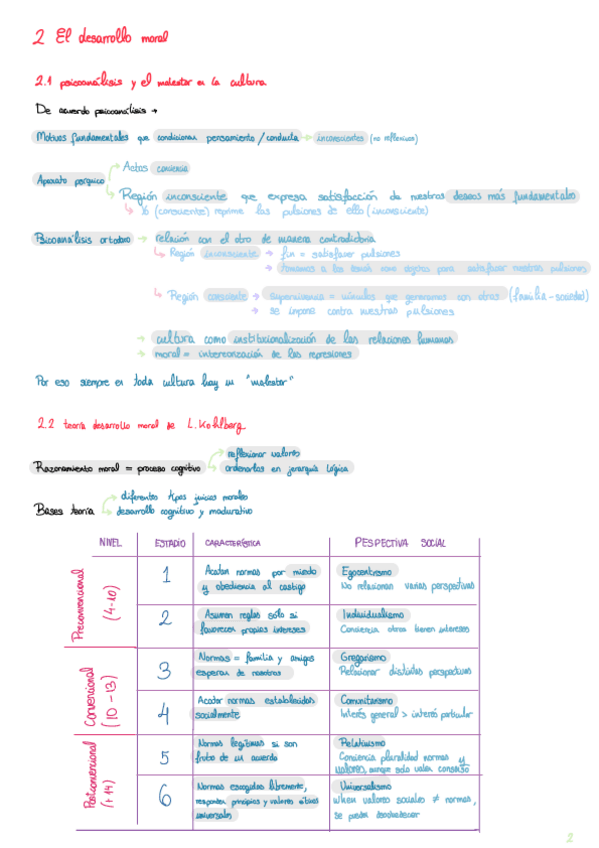 2 El desarrollo moral
2.1 psicoanálisis y el malestar en la cultura
De acuerdo psicoanálisis →
Motivos fundamentales que condicionan pensamiento / conducta → inconscientes (no reflexivos)
Aparato psíquico
→ Actos conciencia
→ Región inconsciente que expresa satisfacción de nuestros deseos más fundamentales
↳ Yo (consciente) reprime las pulsiones de ello (inconsciente)
Psicoanálisis ortodoxo → relación con el otro de manera contradictoria
↳ Región inconsciente → fin = satisfacer pulsiones
→ tomamos a los demás como objetos para satisfacer nuestras pulsiones
↳ Región consciente → supervivencia = vínculos que generamos con otros (familia - sociedad)
→ se impone contra nuestras pulsiones
→ cultura como institucionalización de las relaciones humanas
→ moral = interiorización de las represiones
Por eso siempre en toda cultura hay un "malestar"
2.2 teoría desarrollo moral de L. Kohlberg
→ reflexionar valores
Razonamiento moral = proceso cognitivo → ordenarlos en jerarquía lógica
→ diferentes tipos juicios morales
Bases teoría → desarrollo cognitivo y madurativo
NIVEL ESTADIO CARACTERÍSTICA PESPECTIVA SOCIAL
Preconvencional (4-10)
1 Acatan normas por miedo y obediencia al castigo
Egocentrismo
No relacionan varias perspectivas
2 Asumen reglas sólo si favorecen propios intereses
Individualismo
Conciencia otros tienen intereses
Convencional (10-13)
3 Normas = familia y amigos esperan de nosotros
Gregarismo
Relacionar distintas perspectivas
4 Acatar normas establecidas socialmente
Comunitarismo
Interés general > interés particular
Postconvencional (+14)
5 Normas legítimas si son fruto de un acuerdo
Relativismo
Conciencia pluralidad normas y valores, aunque solo valen consenso
6 Normas escogidas libremente, responden principios y valores éticos universales
Universalismo
When valores sociales ≠ normas, se pueden desobedecer
2